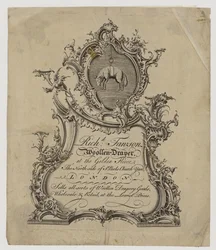 Richd. Fawson,
Woollen-Draper,
at the Golden Fleece,
the North side of St. Pauls Church Yard
LONDON
Sells all sorts of Woollen Drapery Goods,
Wholesale & Retail, at the Lowest Prices.